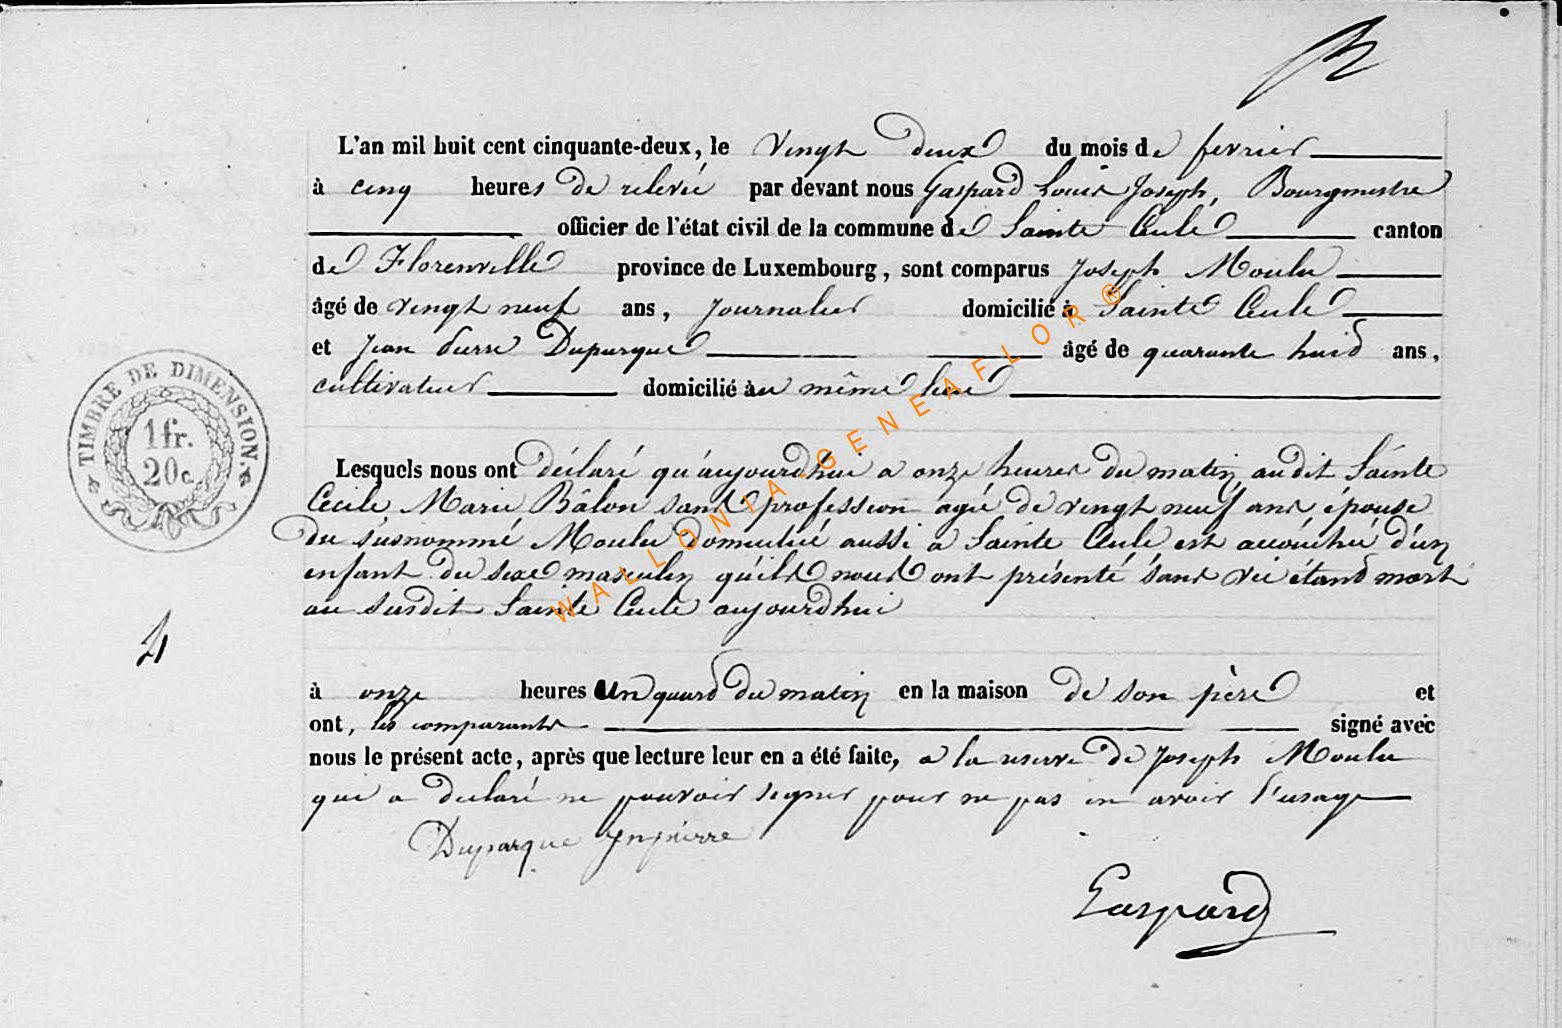 L'an mil huit cent cinquante-deux, le vingt deux du mois de fevrier
à cinq heures de relevée par devant nous Gaspard Louis Joseph, Bourgmestre
officier de l'état civil de la commune de Sainte Cecile canton
de Florenville province de Luxembourg, sont comparus Joseph Moulu
âgé de vingt neuf ans, journalier domicilié à Sainte Cecile
et Jean Pierre Duparque âgé de quarante huid ans,
cultivateur domicilié au même lieu
TIMBRE DE DIMENSION.
1 fr.
20 c.
Lesquels nous ont déclaré qu'aujourd'hui a onze heures du matin, audit Sainte
Cecile Marie Bâlon sans profession agée de vingt neuf ans épouse
du susnommé Moulu domicilié aussi a Sainte Cecile est accouchée d'un
enfant du sexe masculin qu'ils nous ont présenté sans vie étand mort
au susdit Sainte Cecile aujourdhui
4
à onze heures un quard du matin en la maison de son père et
ont, les comparants signé avec
nous le présent acte, après que lecture leur en a été faite, a la reserve de Joseph Moulu
qui a declaré ne pouvoir signer pour ne pas en avoir l'usage
Duparque Jnpierre
Gaspard
WALLONIA-GENEAFLOR ®